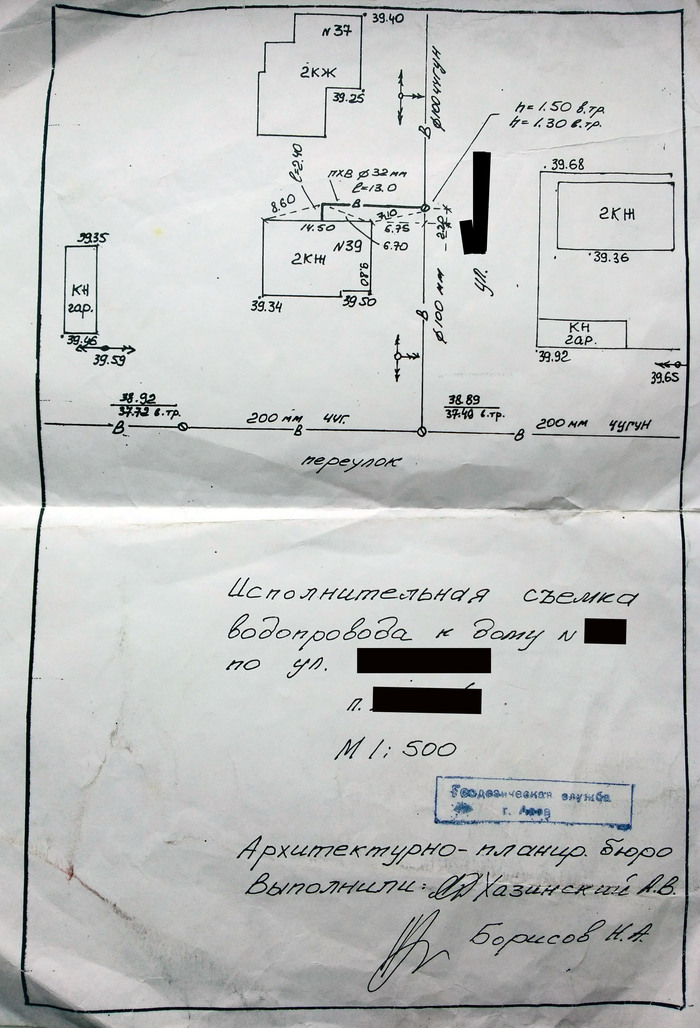 39.40
N 37
2КЖ
39.25
ϕ100 ЧУГУН
В
h=1.50 в.тр.
h=1.30 в.тр.
39.68
2КЖ
39.36
КН
гар.
39.92
39.65
ℓ=2.40
ПХВ ϕ 32 мм
ℓ=13.0
В
8.60
14.50
6.75
6.70
N39
2КЖ
9.80
39.34
39.50
ул.
В
ϕ 100 мм
39.35
КН
гар.
39.46
39.59
38.92
37.72 в.тр.
В
200 мм ЧУГ.
В
38.89
37.49 в.тр.
200 мм ЧУГУН
В
переулок
Исполнительная съемка
водопровода к дому N
по ул.
п.
М 1:500
Геодезическая служба
г. Азов
Архитектурно-планир. бюро
Выполнили: Хазинский А.В.
Борисов Н.А.